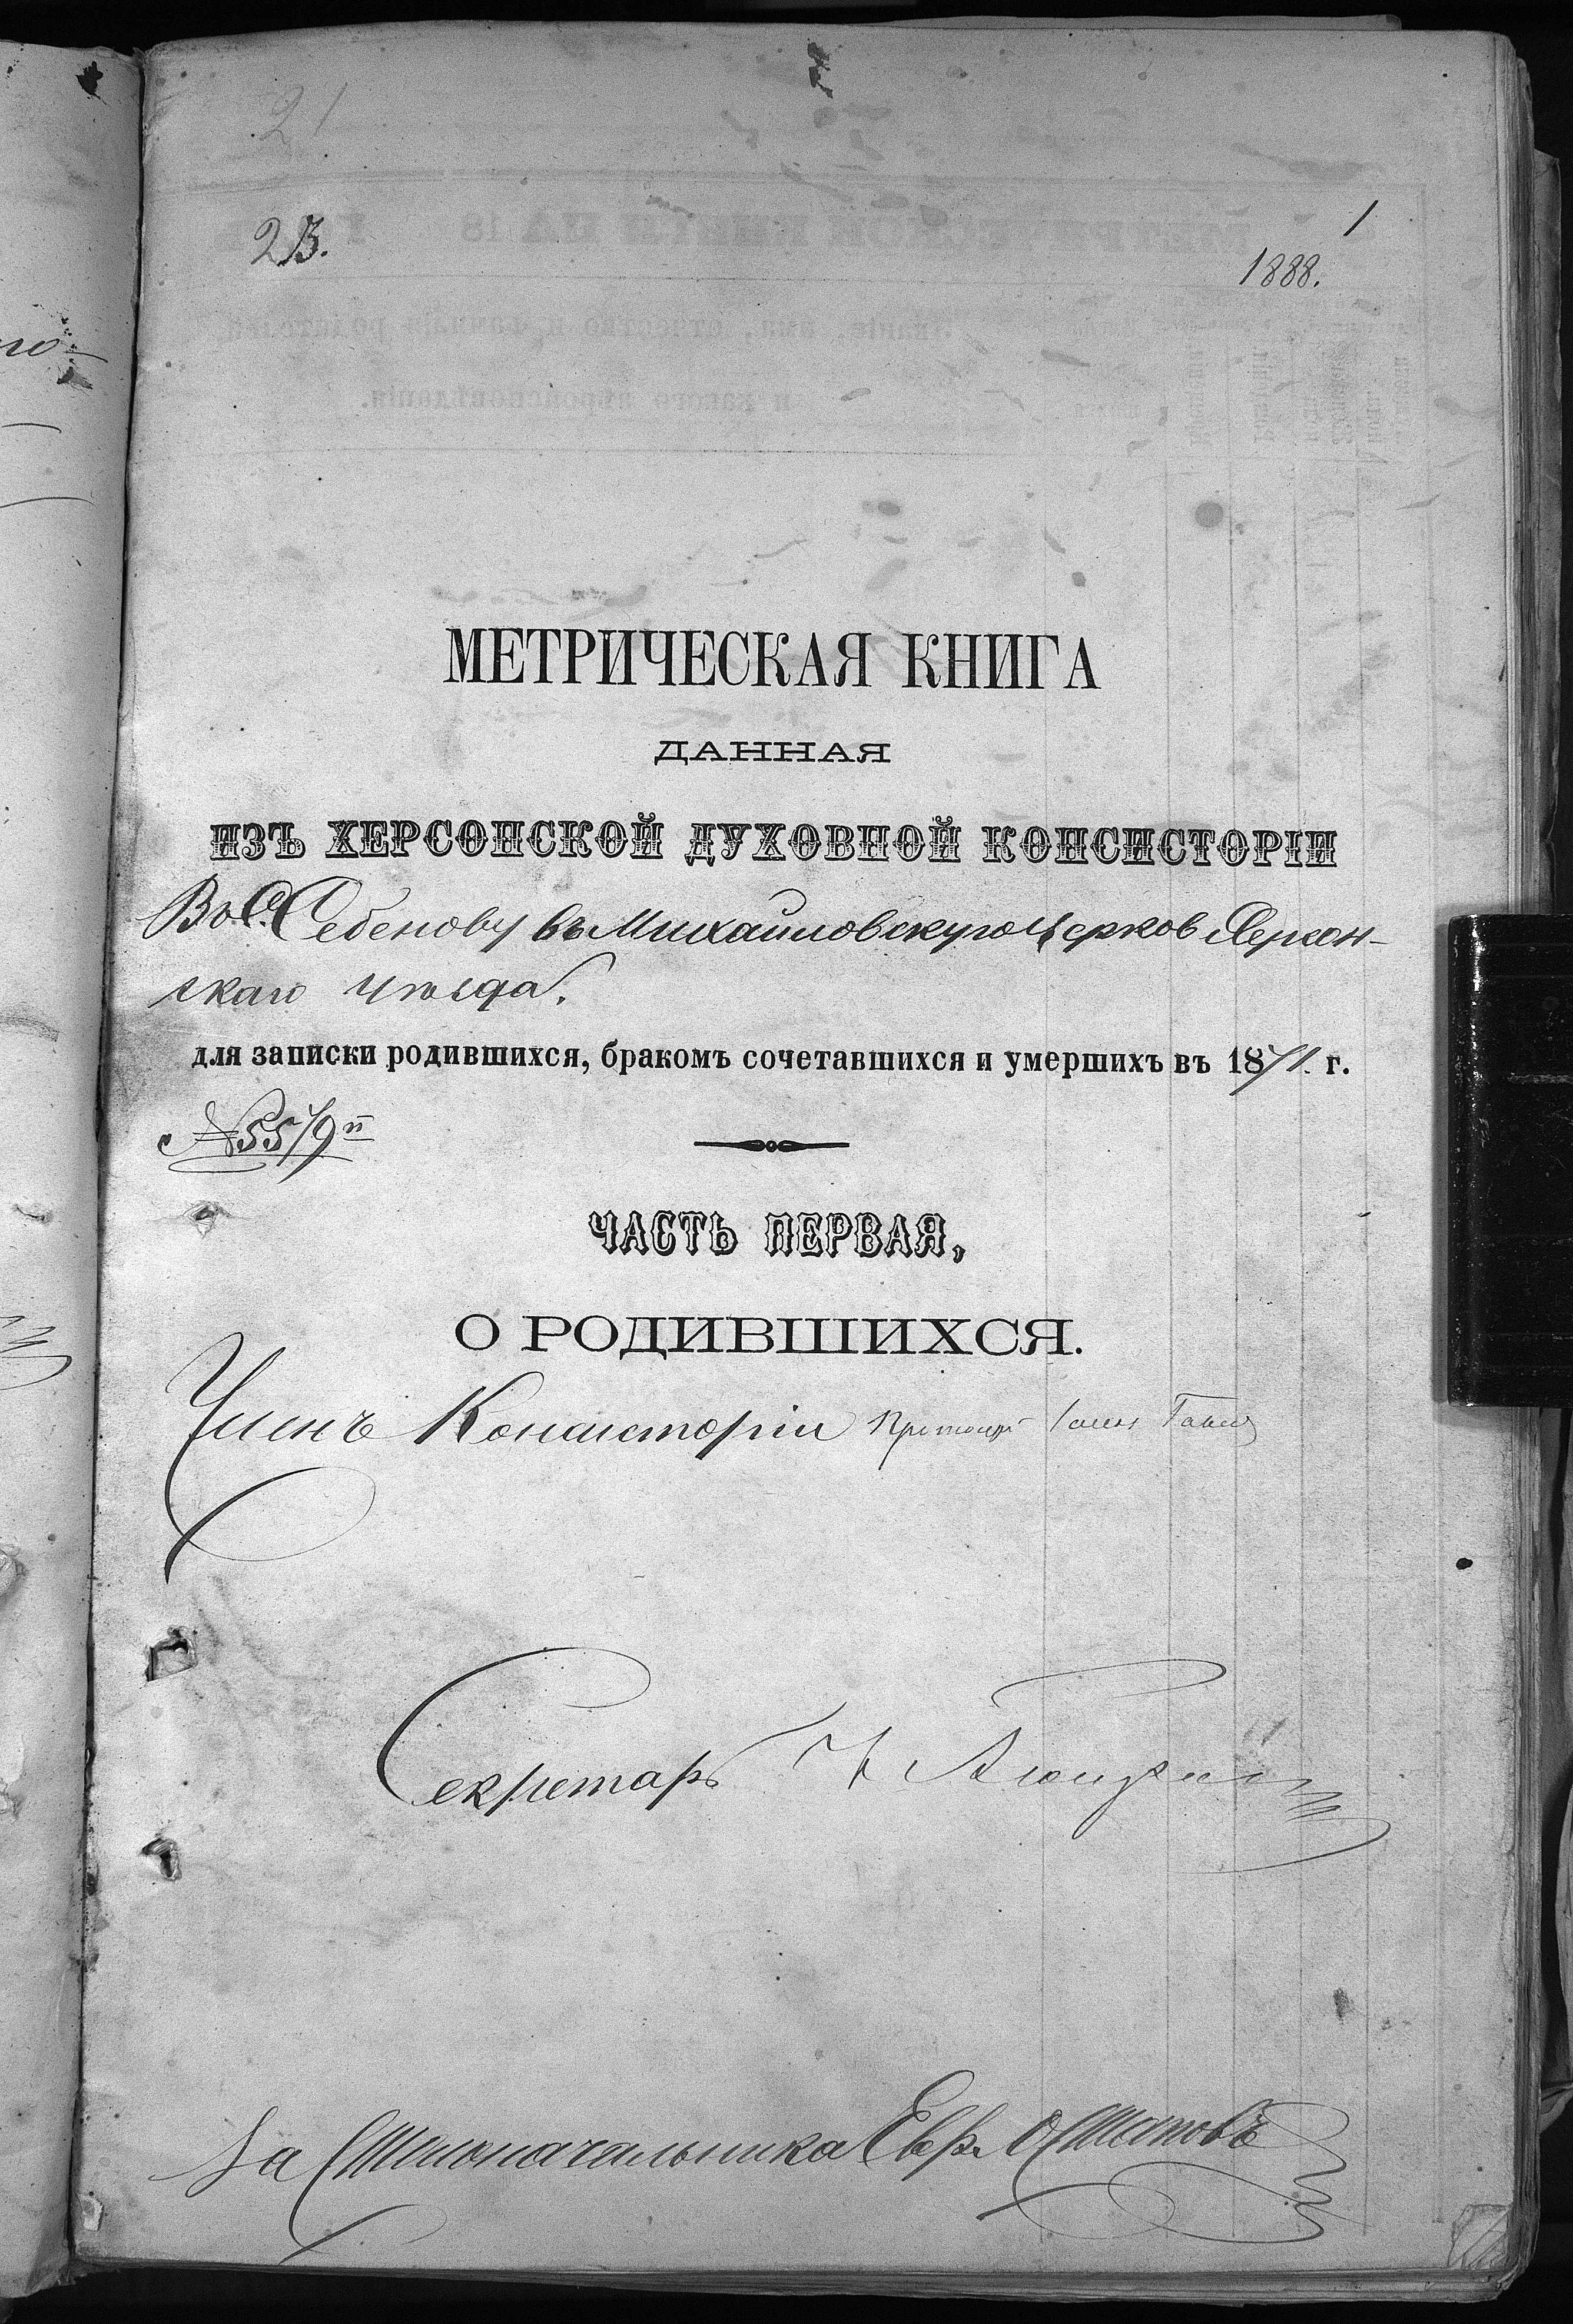 21
23.
1
1888.
МЕТРИЧЕСКАЯ КНИГА
ДАННАЯ
ИЗЪ ХЕРСОНСКОЙ ДУХОВНОЙ КОНСИСТОРІИ
Во С. Себенову въ Михайловскую Церков Херсон-
скаго уѣзда.
для записки родившихся, бракомъ сочетавшихся и умершихъ въ 1871. г.
№ 5579
ЧАСТЬ ПЕРВАЯ,
О РОДИВШИХСЯ.
Членъ Консисторіи Протоіер
Секретарь
За Столоначальника Евр. Остаповъ